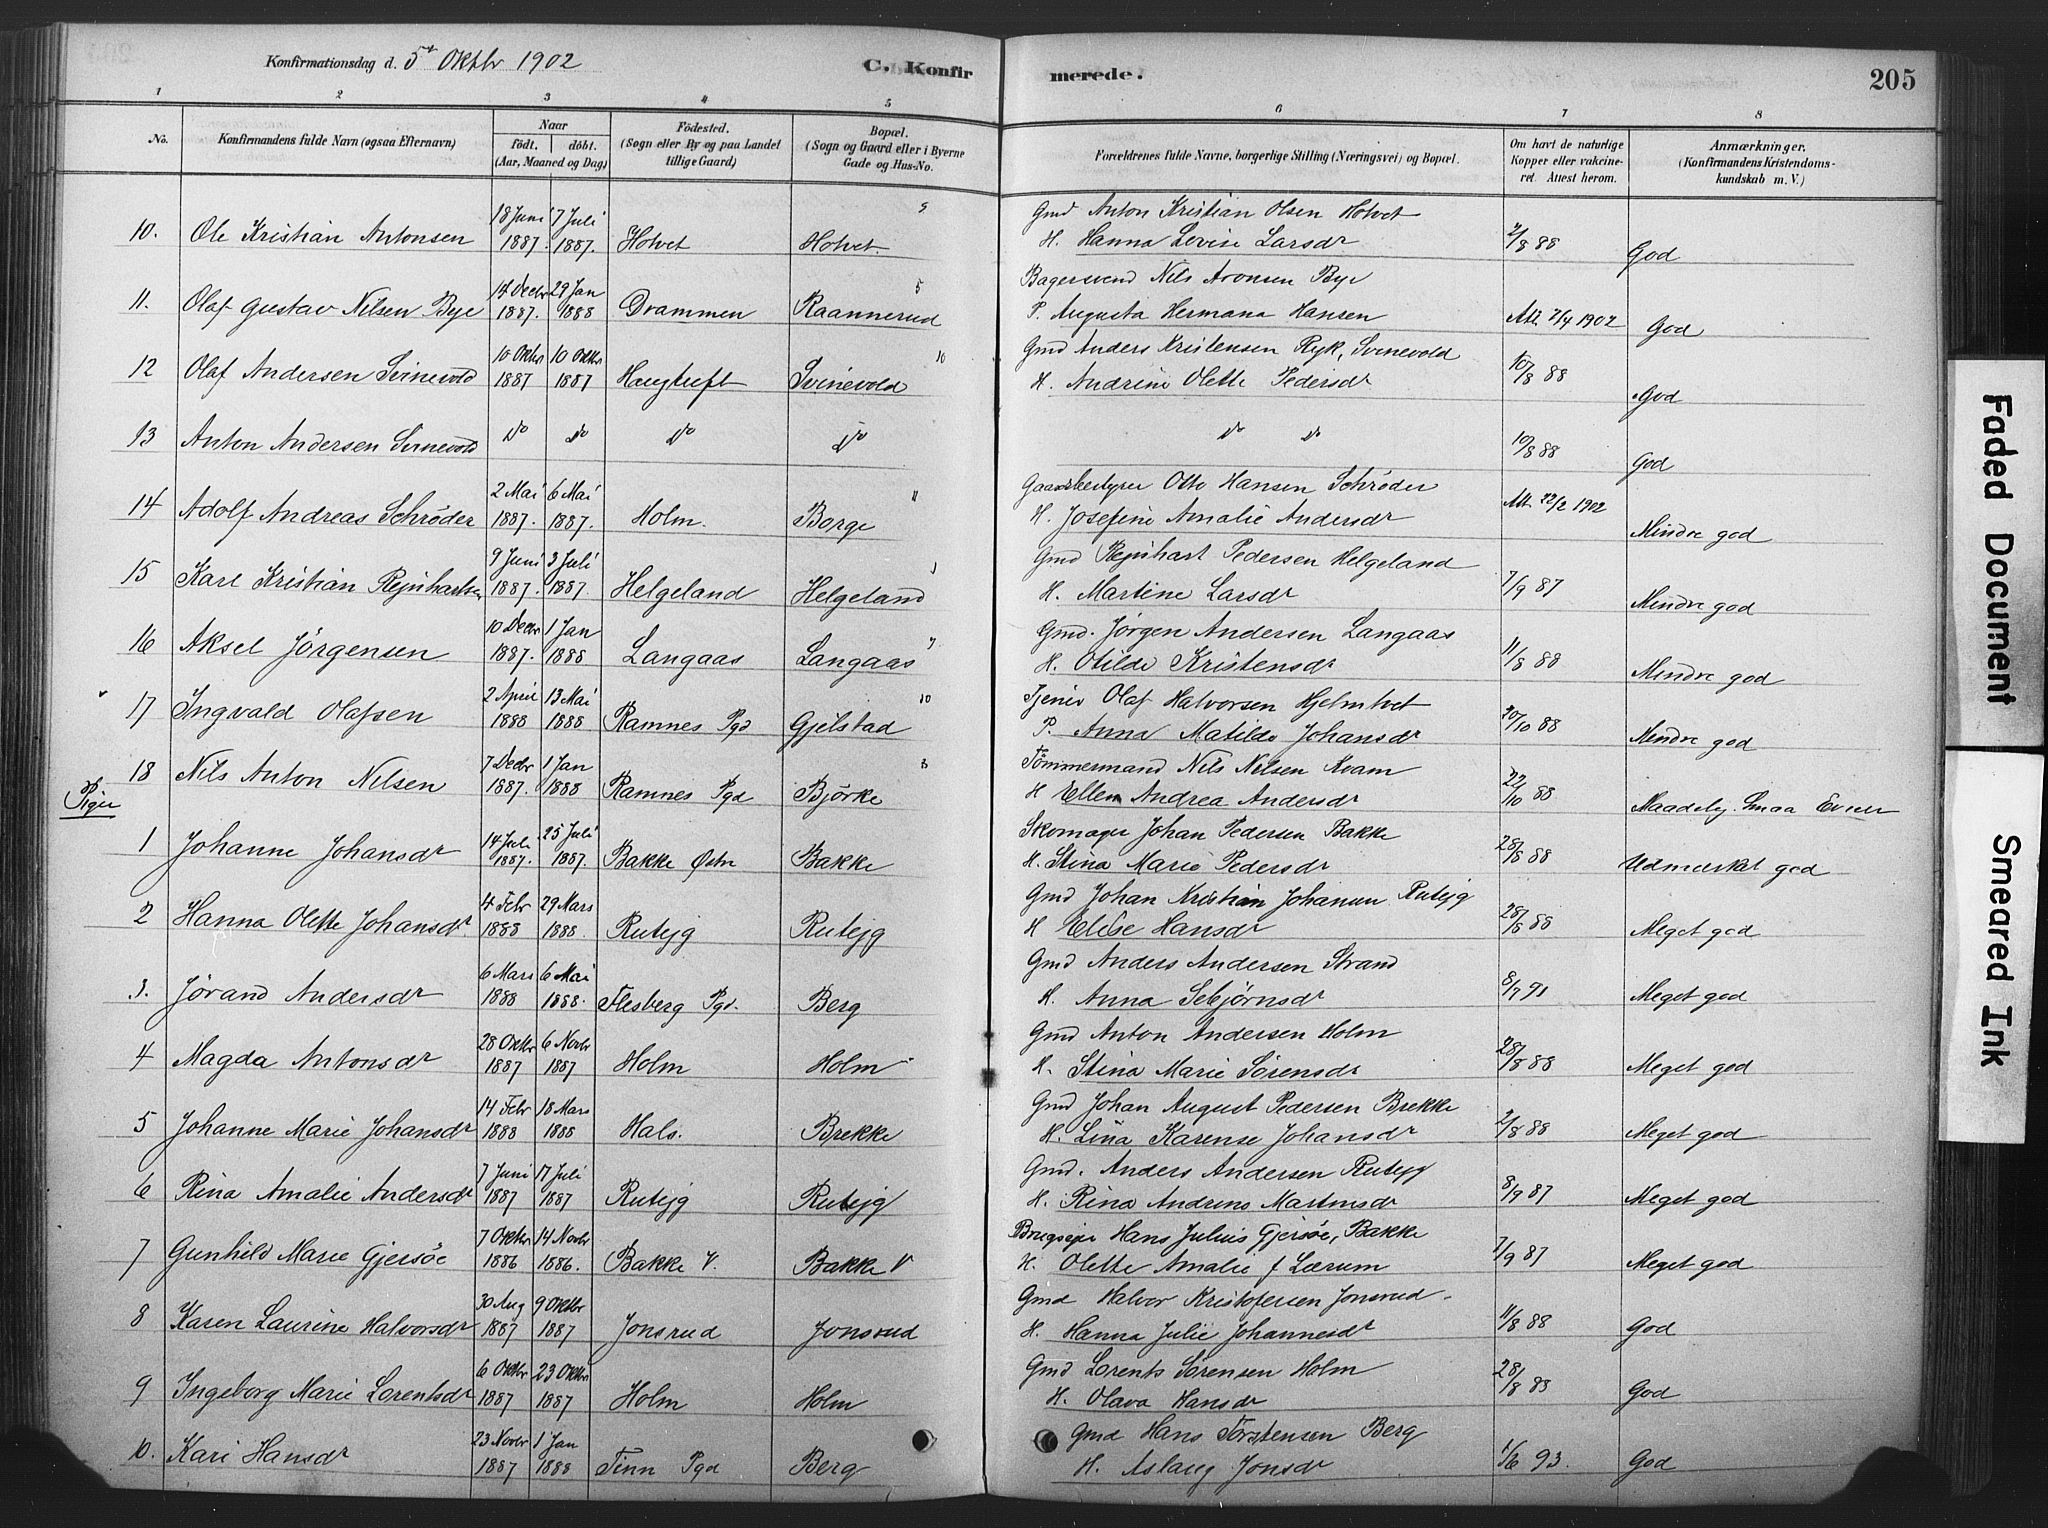 Konfirmationsdag d. 5t Oktbr 1902
C. Konfirmerede.
205
1 2 3 4 5 6 7 8
No. Konfirmandens fulde Navn (ogsaa Efternavn) Naar födt. döbt. (Aar, Maaned og Dag) Födested. (Sogn eller By og paa Landet tillige Gaard) Bopæl. (Sogn og Gaard eller i Byerne Gade og Hus-No. Forældrenes fulde Navne, borgerlige Stilling (Næringsvei) og Bopæl. Om havt de naturlige Kopper eller vakcineret. Attest herom. Anmærkninger. (Konfirmandens Kristendomskundskab m. V.)
10. Ole Kristian Antonsen 18 Juni 1887. 7 Juli 1887. Holvet Holvet. 9 Gmd Anton Kristian Olsen Holvet
H. Hanna Lovise Larsdr 2/8 88 God
11. Olaf Gustav Nilsen Bye 14 Decbr 1887. 29 Jan 1888 Drammen Raannerud 5 Bagersvend Nils Aronsen Bye
P. Augusta Hermana Hansen Att. 7/4 1902 God
12 Olaf Andersen Svinevold 10 Oktbr 1887 10 Oktbr 1887 Haugtuft Svinevold 10 Gmd Anders Kristensen Ryk, Svinevold
H. Andrine Olette Pedersdr 10/8 88 God
13 Anton Andersen Svinevold Do Do Do Do Do Do 10/8 88 God
14 Adolf Andreas Schrøder 2 Mai 1887. 6 Mai 1887. Holm. Borge 11 Gaardsbestyrer Otto Hansen Schrøder
H. Josefine Amalie Andersdr Att. 22/2 1902 Mindre god
15 Karl Kristian Rejnhartsen 9 Juni 1887. 3 Juli 1887. Helgeland Helgeland Gmd Rejnhart Pedersen Helgeland
H. Martine Larsdr 7/9 87 Mindre god
16 Aksel Jörgensen 10 Decbr 1887. 1 Jan 1888 Langaas Langaas 7 Gmd. Jörgen Andersen Langaas
H. Otilde Kristensdr 11/8 88 Mindre god
17 Ingvald Olafsen 2 April 1888 13 Mai 1888 Ramnes Pgd Gjelstad 10 Tjener Olaf Halvorsen Hjelmtvet
P. Anna Matilde Johansdr 20/10 88 Mindre god
18 Nils Anton Nilsen 7 Decbr 1887. 1 Jan 1888 Ramnes Pgd Björke 8 Tömmermand Nils Nilsen Kvam
H Ellen Andrea Andersdr 22/10 88 Maadelig. Smaa Evner
Piger
1 Johanne Johansdr 14 Juli 1887. 25 Juli 1887. Bakke Østre Bakke Skomager Johan Pedersen Bakke
H. Stina Marie Pedersdr 28/8 88 Udmærket god
2 Hanna Olette Johansdr. 4 Febr 1888 29 Mars 1888. Rutejg Rutejg Gmd Johan Kristian Johansen Rutejg
H Elise Hansdr 28/8 88 Meget god
3. Jörand Andersdr 6 Mars 1888 6 Mai 1888. Flesberg Pgd. Berg Gmd Anders Andersen Strand
H. Anna Sebjörnsdr 8/7 91 Meget god
4 Magda Antonsdr 28 Oktbr 1887 6 Novbr 1887 Holm Holm Gmd Anton Andersen Holm
H. Stina Marie Sörensdr 28/8 88 Meget god
5 Johanne Marie Johansdr 14 Febr 1888 18 Mars 1888 Hals. Brekke Gmd Johan August Pedersen Brekke
H. Lina Karense Johansdr 2/8 88 Meget god
6 Rina Amalie Andersdr 7 Juni 1887 17 Juli 1887 Rutejg Rutejg Gmd. Anders Andersen Rutejg
H. Rina Andrine Martinsdr 8/9 87 Meget god
7 Gunhild Marie Gjersöe 7 Oktbr 1886 14 Novbr 1886. Bakke V. Bakke V Brugsejer Hans Julius Gjersöe, Bakke
H. Olette Amalie f Lærum 7/9 87 Meget god
8 Karen Laurine Halvorsdr 30 Aug 1887 9 Oktbr 1887 Jonsrud Jonsrud Gmd Halvor Kristofersen Jonsrud
H. Hanna Julie Johannesdr 11/8 88 God
9 Ingeborg Marie Lorentsdr 6 Oktbr 1887 23 Oktbr 1887 Holm Holm Gmd Lorents Sörensen Holm
H. Olava Hansdr 28/8 88 God
10. Kari Hansdr 23 Novbr 1887 1 Jan 1888 Tinn Pgd Berg Gmd Hans Torstensen Berg
H. Aslaug Jonsdr 1/6 93. God
Faded Document
Smeared Ink